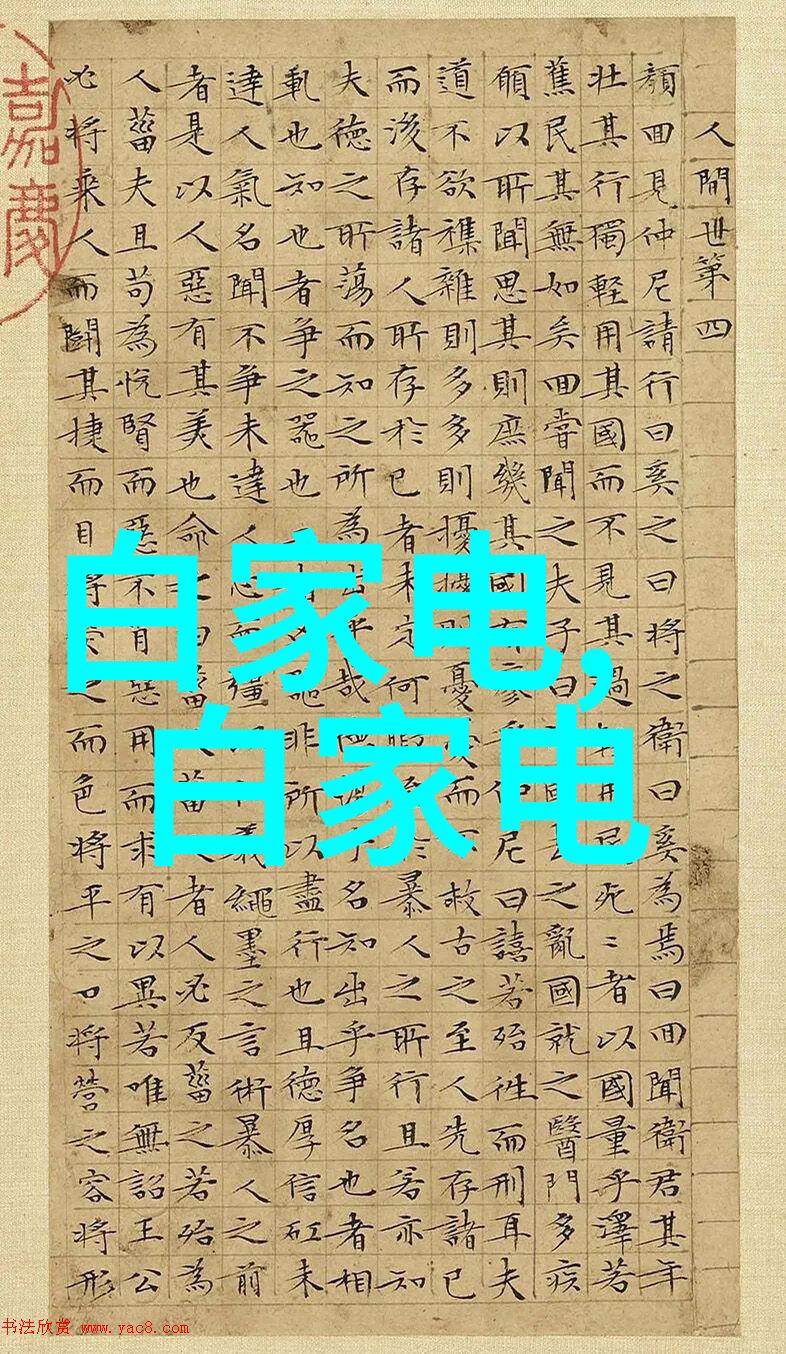 人間世第四
顏回見仲尼請行曰奚之曰將之衛曰奚為焉曰回聞衛君其年
壯其行獨輕用其國而不見其過輕用民死〻者以國量乎澤若
蕉民其無如矣回甞聞之夫子曰治國去之亂國就之醫門多疾
願以所聞思其則庶幾其國有瘳乎仲尼曰譆若殆往而刑耳夫
道不欲襍雜則多多則擾擾則憂憂而不救古之至人先存諸已
而後存諸人所存於已者未定何暇至於暴人之所行且若亦知
夫德之所蕩而知之所為出乎哉德蕩乎名知出乎爭名也者相
軋也知也者爭之器也二者凶器非所以盡行也且德厚信矼未
達人氣名聞不爭未達人心而彊以仁義繩墨之言術暴人之前
者是以人惡有其美也命之曰菑人菑人者人必反菑之若殆為
人菑夫且苟為悅賢而惡不肖惡用而求有以異若唯無詔王公
必將乘人而鬪其捷而目將熒之而色將平之口將營之容將形
嘉慶
白家电,
白家电
书法欣赏 www.yac8.com